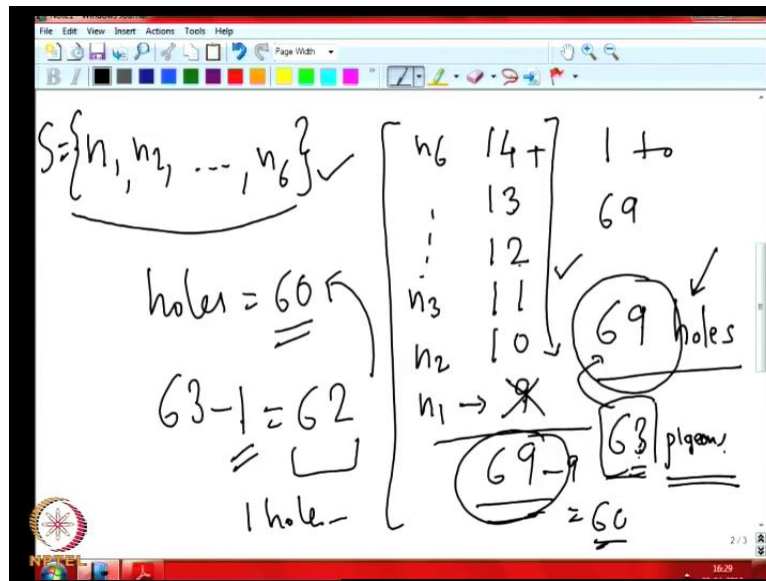 File Edit View Insert Actions Tools Help
Page Width
B I
S={n1, n2, ..., n6} ✓
holes = 60
63-1 = 62
1 hole-
n6 14 +
13
12
n3 11 ✓
n2 10
n1 → 9
69 - 9
= 60
1 to
69
69 holes
63 pigeons
2/3
NPTEL
16:29